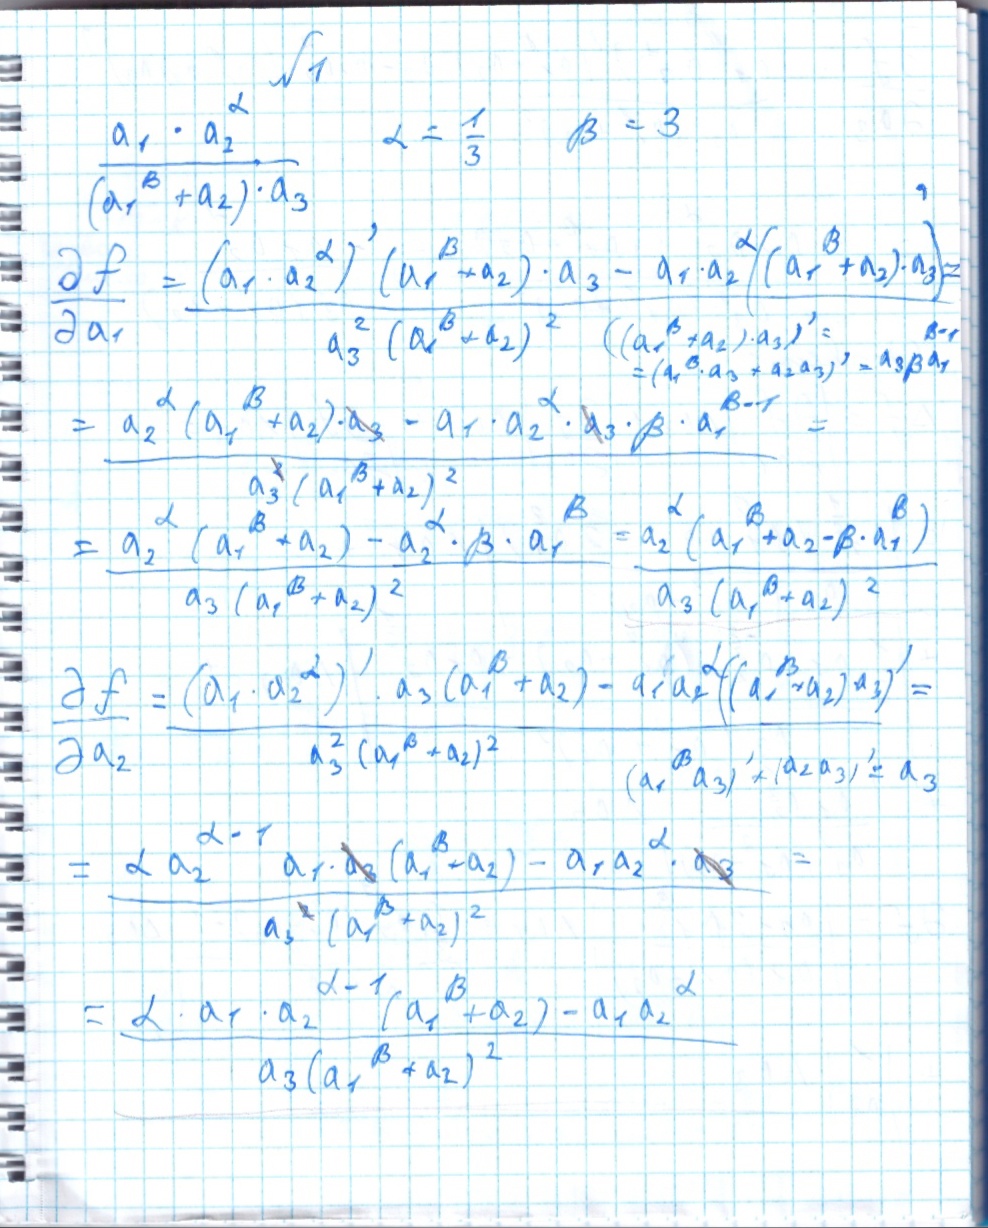 №1
a₁ · a₂^α / ((a₁^β + a₂) · a₃)   α = 1/3   β = 3
∂f/∂a₁ = ((a₁ · a₂^α)' (a₁^β + a₂) · a₃ − a₁ · a₂^α ((a₁^β + a₂) · a₃)') / (a₃² (a₁^β + a₂)²) =
((a₁^β + a₂) · a₃)' =
= (a₁^β · a₃ + a₂a₃)' = a₃βa₁^(β−1)
= (a₂^α (a₁^β + a₂) · a₃ − a₁ · a₂^α · a₃ · β · a₁^(β−1)) / (a₃² (a₁^β + a₂)²) =
= (a₂^α (a₁^β + a₂) − a₂^α · β · a₁^β) / (a₃ (a₁^β + a₂)²) = a₂^α (a₁^β + a₂ − β · a₁^β) / (a₃ (a₁^β + a₂)²)
∂f/∂a₂ = ((a₁ · a₂^α)' · a₃ (a₁^β + a₂) − a₁ a₂^α ((a₁^β + a₂) · a₃)') / (a₃² (a₁^β + a₂)²) =
(a₁^β a₃)' + (a₂a₃)' = a₃
= (α a₂^(α−1) a₁ · a₃ (a₁^β + a₂) − a₁ a₂^α · a₃) / (a₃² (a₁^β + a₂)²) =
= (α · a₁ · a₂^(α−1) (a₁^β + a₂) − a₁ a₂^α) / (a₃ (a₁^β + a₂)²)